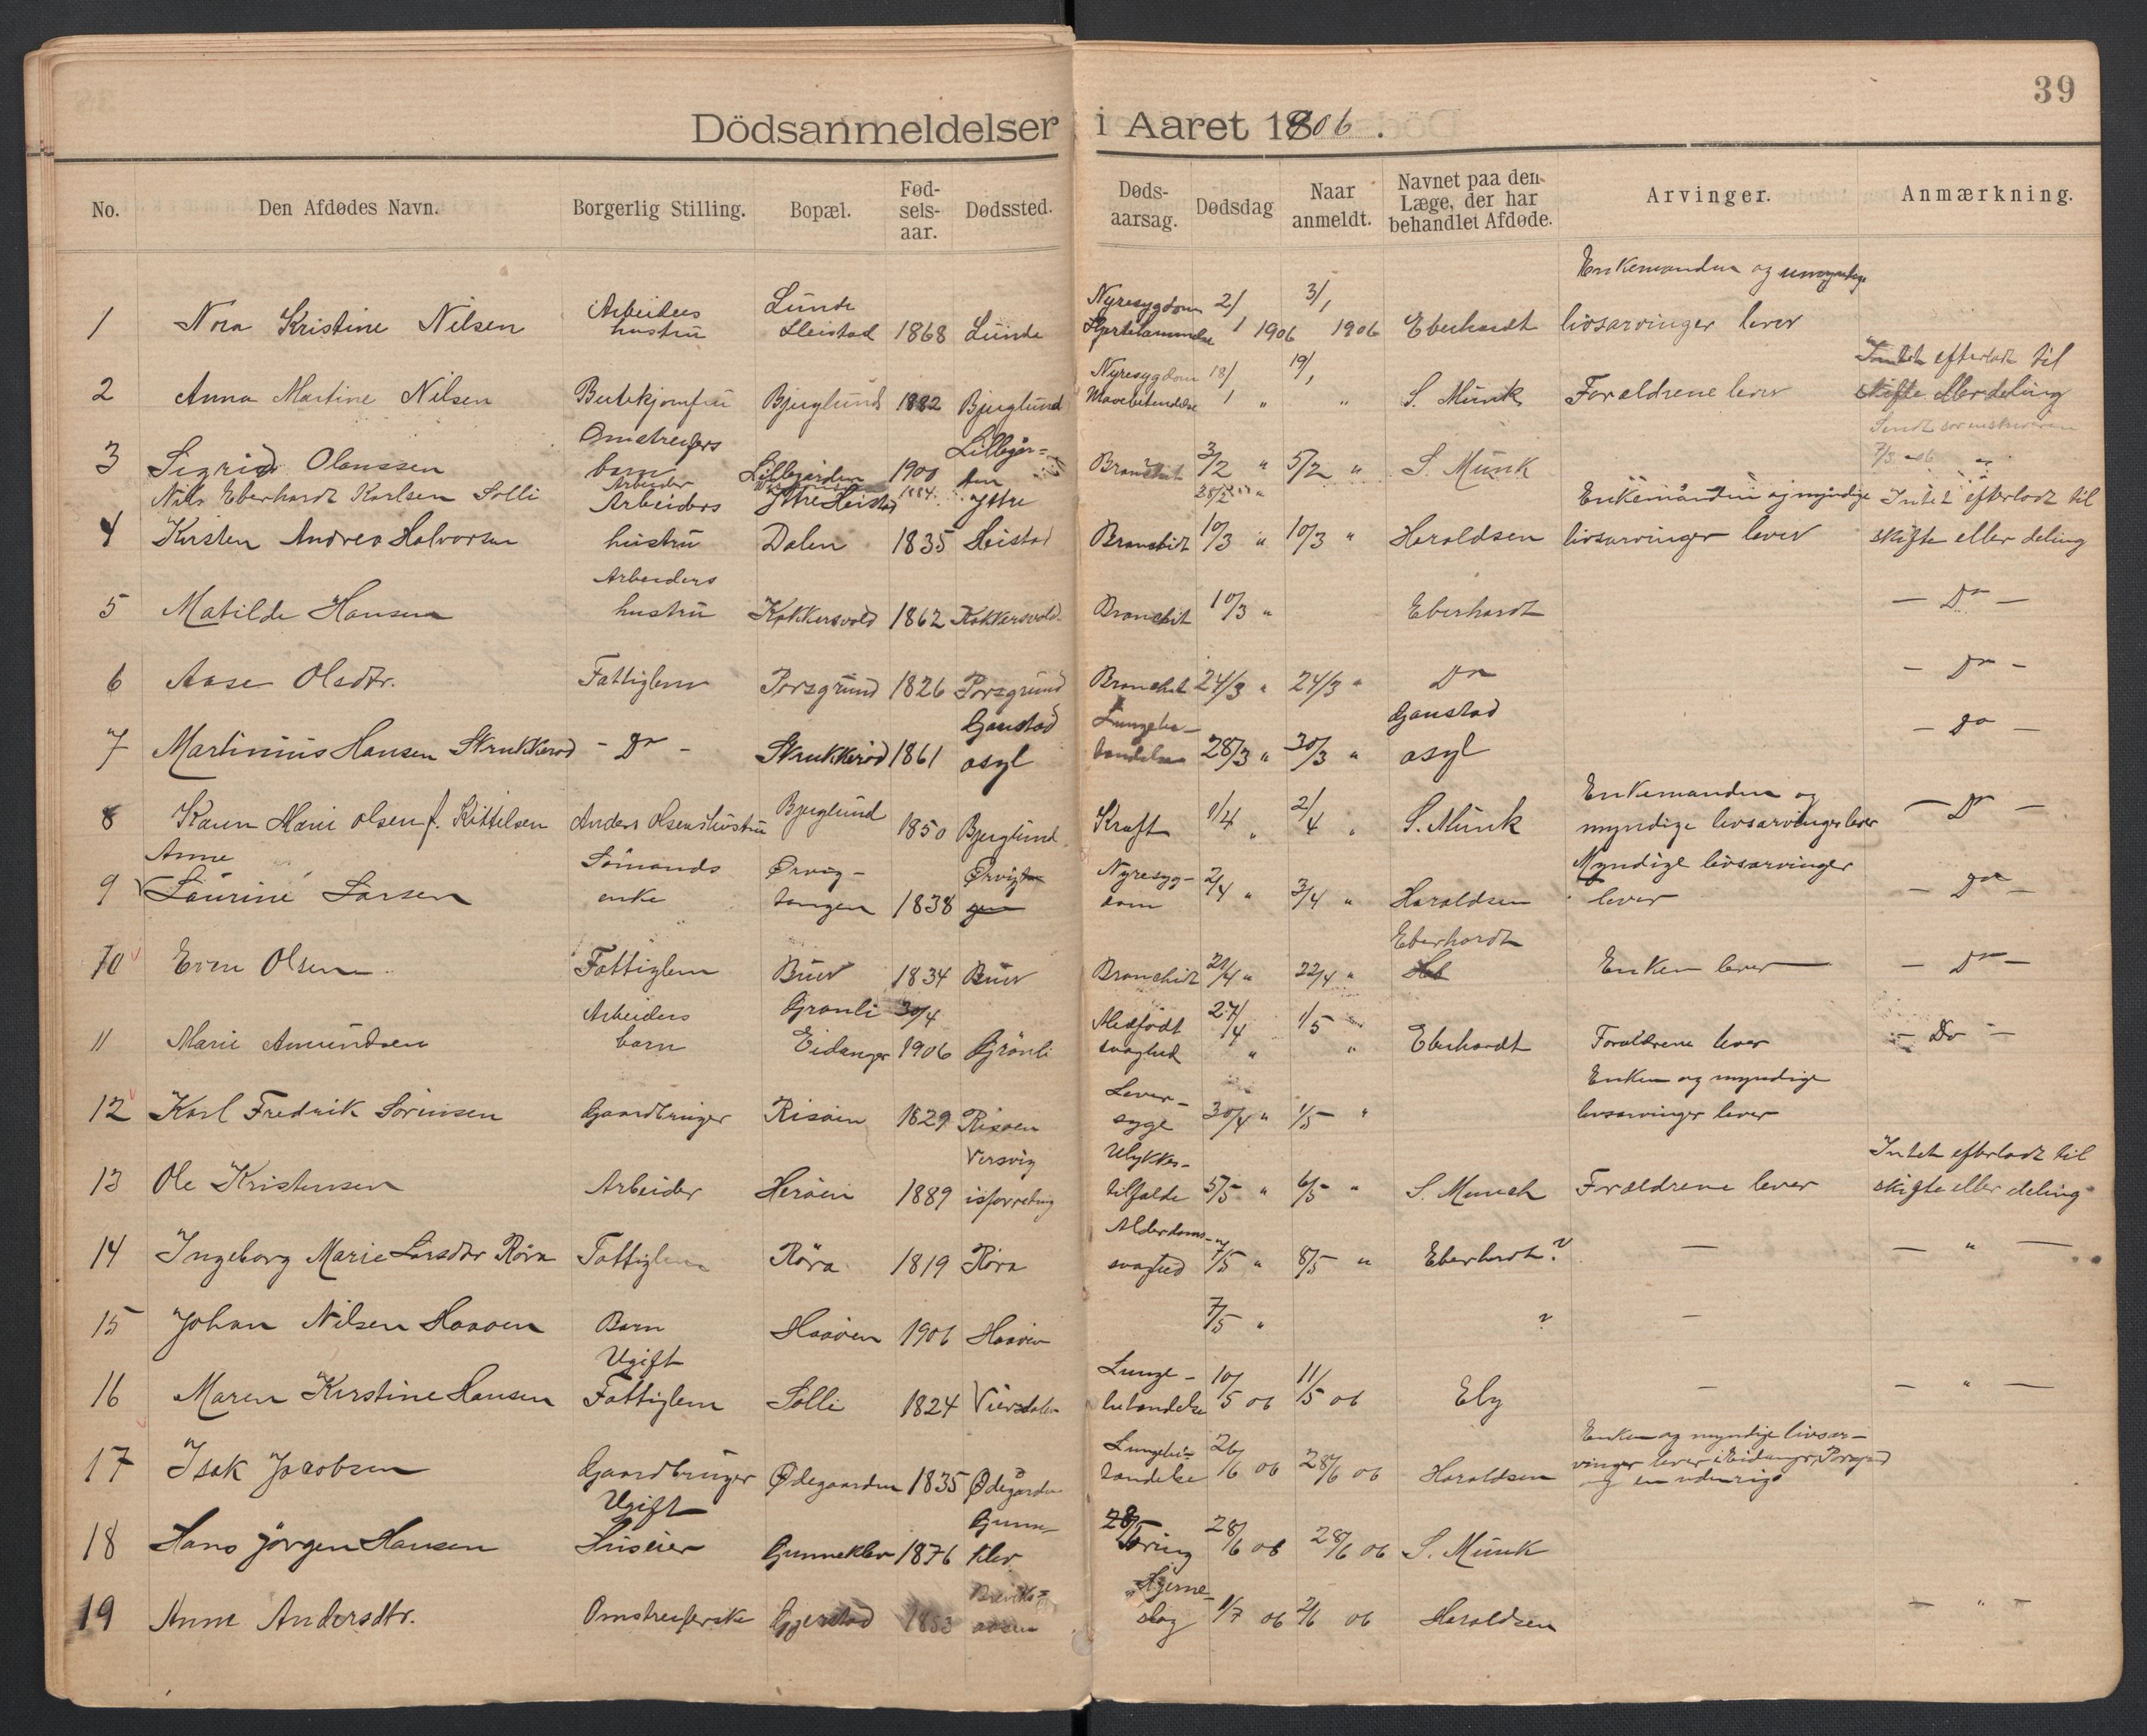 39
Dödsanmeldelser i Aaret 1906.
No. Den Afdødes Navn. Borgerlig Stilling. Bopæl. Fødselsaar. Dødssted. Dødsaarsag. Dødsdag Naar anmeldt. Navnet paa den Læge, der har behandlet Afdøde. Arvinger. Anmærkning.
Enkemanden og umyndige
Arbeiders Lunde Nyresygdom 2/ 3/
1 Nora Kristine Nilsen hustru Heistad 1868 Lunde 1 1906 1906 Eberhardt livsarvinger lever
Nyresygdom 18/ 19/ Intet efterladt til
2 Anna Martine Nilsen Butikjomfru Bjerglund 1882 Bjerglund Mavebetendelse 1 " " S. Munk Forældrene lever skifte eller deling
Omstreifers Lillegår=
3 Sigrid Olanssen barn Lillegården 1900 den Bronchit 3/2 " 5/2 " S. Munk 7/3 06
Nils Eberhardt Karlsen Solli Arbeider 1884 28/2 "
Arbeiders Ytre Heistad ytre Enkemanden og myndige Intet efterladt til
4 Kirsten Andrea Halvorsen hustru Dalen 1835 Heistad Bronchit 10/3 " 10/3 " Haraldsen livsarvinger lever skifte eller deling
Arbeiders
5 Matilde Hansen hustru Kokkersvold 1862 Kokkersvold Bronchit 10/3 " Eberhardt — Do —
6 Aase Olsdtr. Fattiglem Porsgrund 1826 Porsgrund Bronchit 24/3 " 24/3 " Do — Do —
Gaustad Lungebe- Gaustad
7 Martinius Hansen Skrukkerød - Do - Skrukkerød 1861 asyl tændelse 28/3 " 30/3 " asyl — Do —
Enkemanden og
8 Karen Marie Olsen f. Kittelsen Anders Olsens hustru Bjerglund 1850 Bjerglund Kræft 1/4 " 2/4 " S. Munk myndige livsarvinger lever — Do —
Anne Sømands Ørvig- Nyresyg- Myndige livsarvinger
9 Laurine Larsen enke tangen 1838 dom 2/4 " 3/4 " Haraldsen lever — Do —
Eberhardt
10 Even Olsen Fattiglem Buer 1834 Buer Bronchit 21/4 " 22/4 " Enken lever — Do —
Arbeiders Grønli 30/4 Medfødt 27/
11 Marie Amundsen barn Eidanger 1906 Grönli svaghed 4 " 1/5 " Eberhardt Forældrene lever — Do —
Lever- Enken og myndige
12 Karl Fredrik Sørensen Gaardbruger Risøen 1829 Risøen syge 30/4 " 1/5 " livsarvinger lever
Versvig Ulykkes- Intet efterladt til
13 Ole Kristensen Arbeider Herøen 1889 isforretning tilfælde 5/5 " 6/5 " S. Munch Forældrene lever skifte eller deling
Alderdoms-
14 Ingeborg Marie Larsdtr Røra Fattiglem Röra 1819 Röra svaghed 7/5 " 8/5 " Eberhardt? — — " —
15 Johan Nilsen Haaøen Barn Haaøen 1906 Haaøen 7/5 " ? —
Ugift Lunge- 10/ 11/
16 Maren Kirstine Hansen Fattiglem Solli 1824 Viersdalen betændelse 5 06 5 06 Eby — — " —
Lungebe- Enken og myndige livsar-
17 Isak Jacobsen Gaardbruger Ødegaarden 1835 Ødegården tændelse 26/6 06 28/6 06 Haraldsen vinger lever i Eidanger, Porsgrund
og en udenrigs
Ugift Gunne-
18 Hans Jörgen Hansen Huseier Gunneklev 1876 klev Tæring 28/6 06 28/6 06 S. Munk
Hjerne-
19 Anne Andersdtr. Omstreiferske Gjerstad 1853 slag 1/7 06 2/6 06 Haraldsen — " —